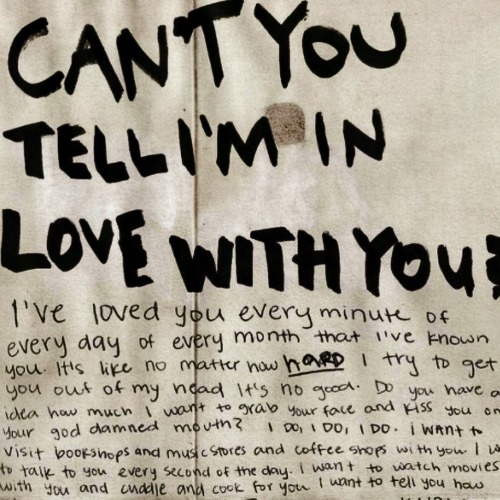 CAN'T YOU
TELL I'M IN
LOVE WITH YOU?
I've loved you every minute of
every day of every month that I've known
you. It's like no matter how HARD I try to get
you out of my head It's no good. Do you have a
idea how much I want to grab your face and kiss you on
your god damned mouth? I DO, I DO, I DO. I WANT to
visit bookshops and music stores and coffee shops with you. I w
to talk to you every second of the day. I want to watch movies
with you and cuddle and cook for you I want to tell you how